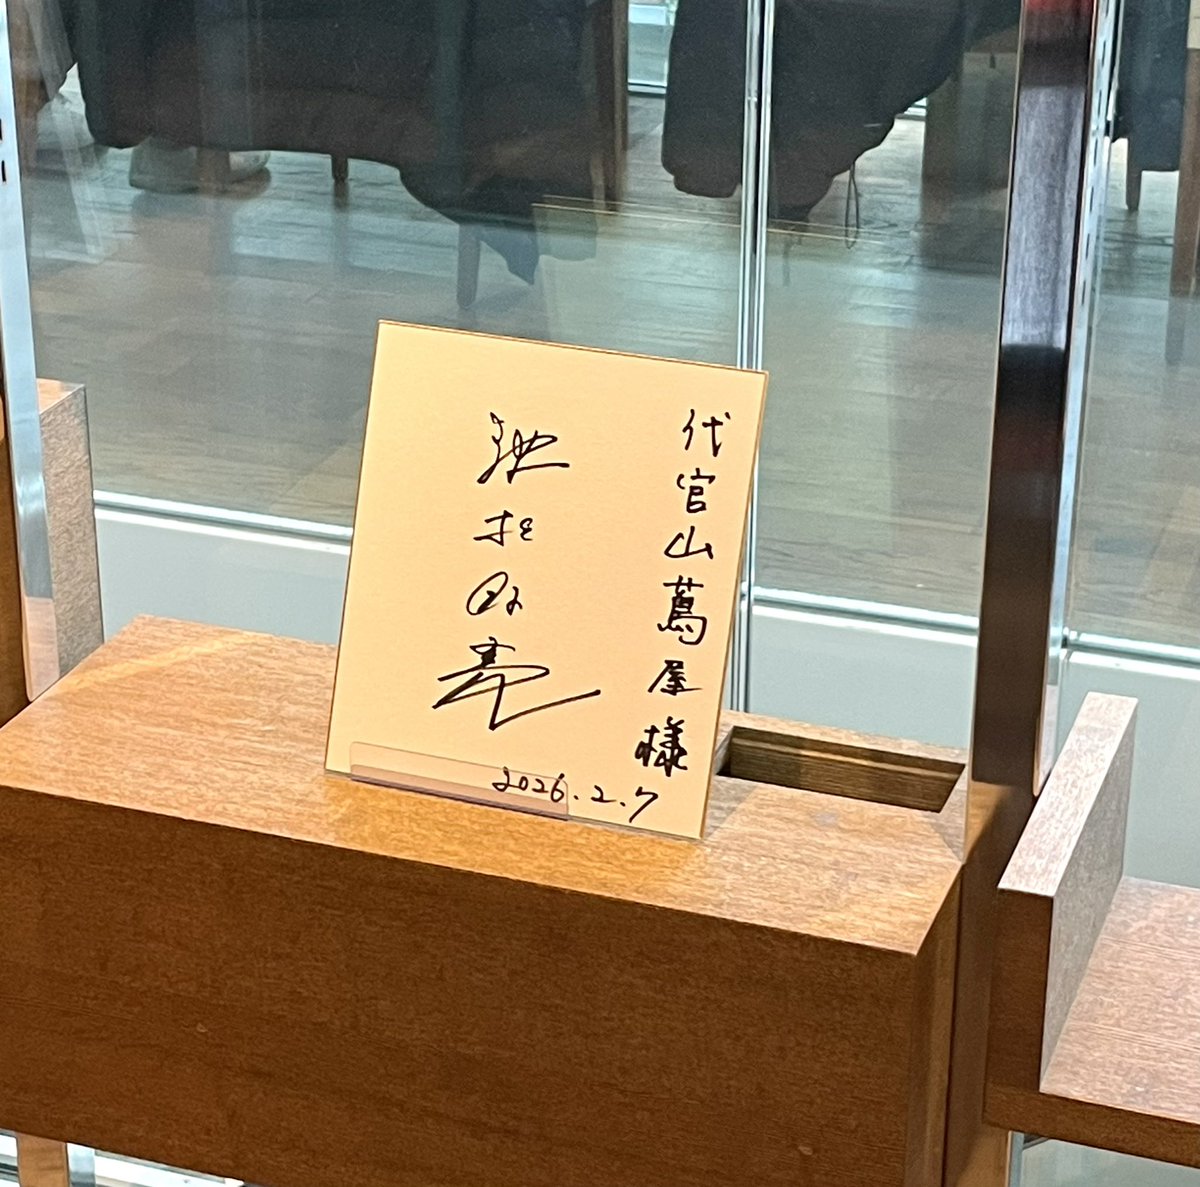 代官山蔦屋様
池松壮亮
2026.2.7